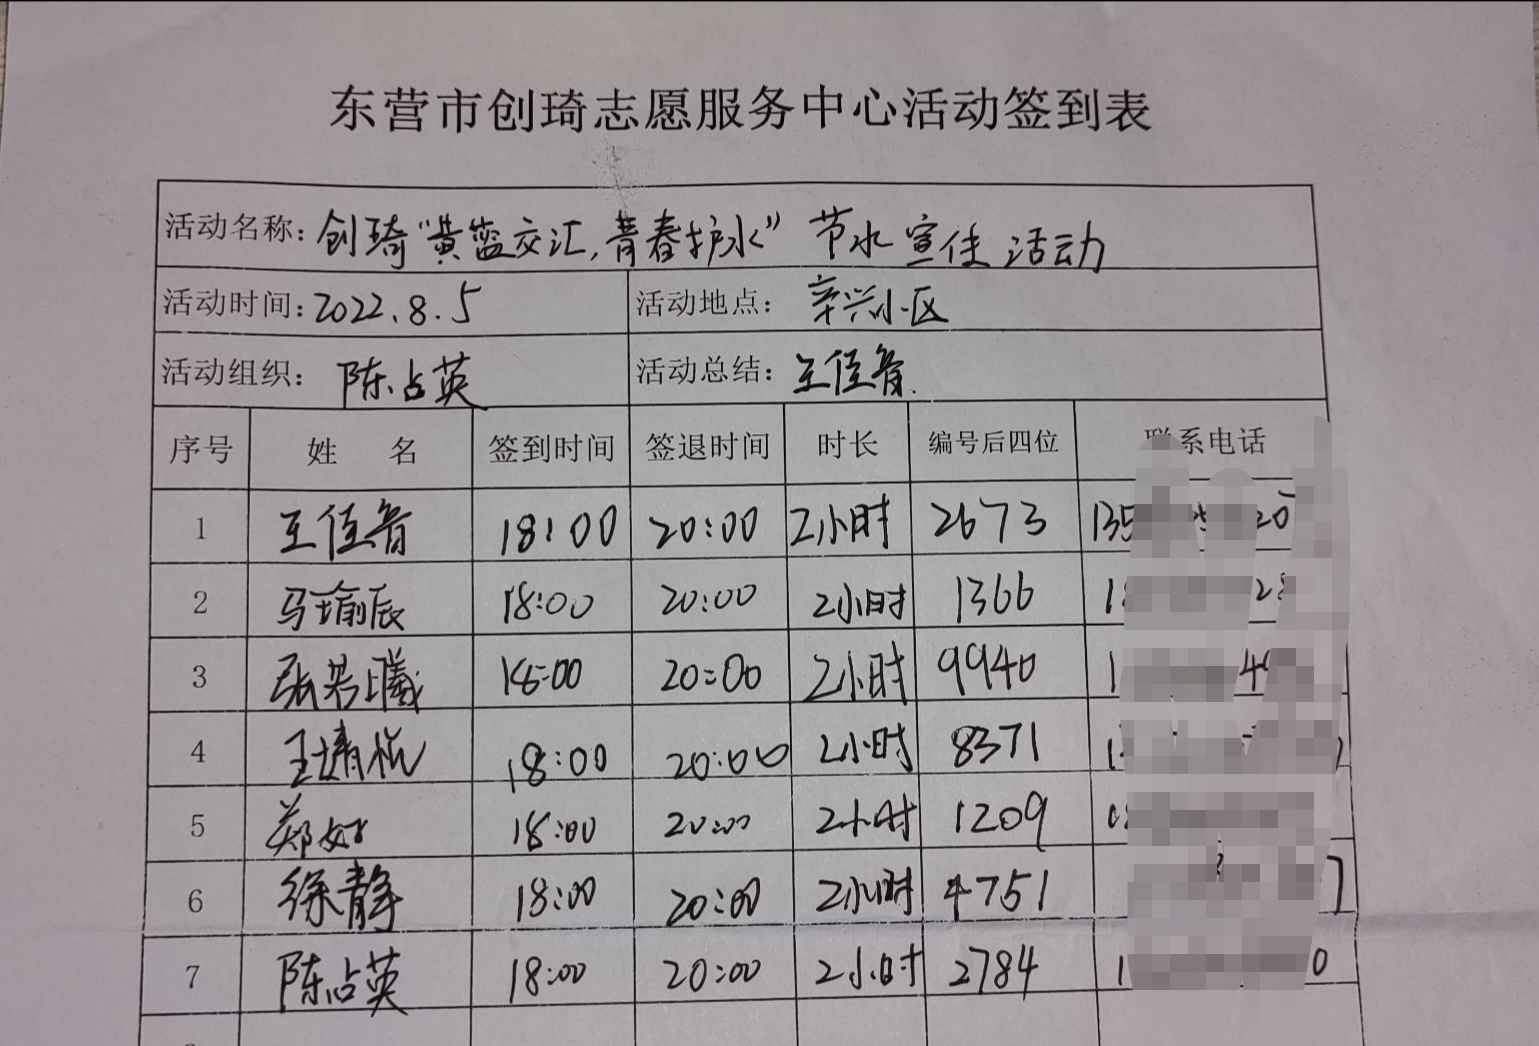 东营市创琦志愿服务中心活动签到表
活动名称：创琦“黄蓝交汇，青春护水”节水宣传活动
活动时间：2022.8.5 活动地点：辛兴小区
活动组织：陈占英 活动总结：王佳音
序号 姓名 签到时间 签退时间 时长 编号后四位 联系电话
1 王佳音 18:00 20:00 2小时 2673 135
2 马瑜辰 18:00 20:00 2小时 1366
3 张若曦 18:00 20:00 2小时 9940
4 王靖悦 18:00 20:00 2小时 8371
5 郑好 18:00 20:00 2小时 1209
6 徐静 18:00 20:00 2小时 4751
7 陈占英 18:00 20:00 2小时 2784